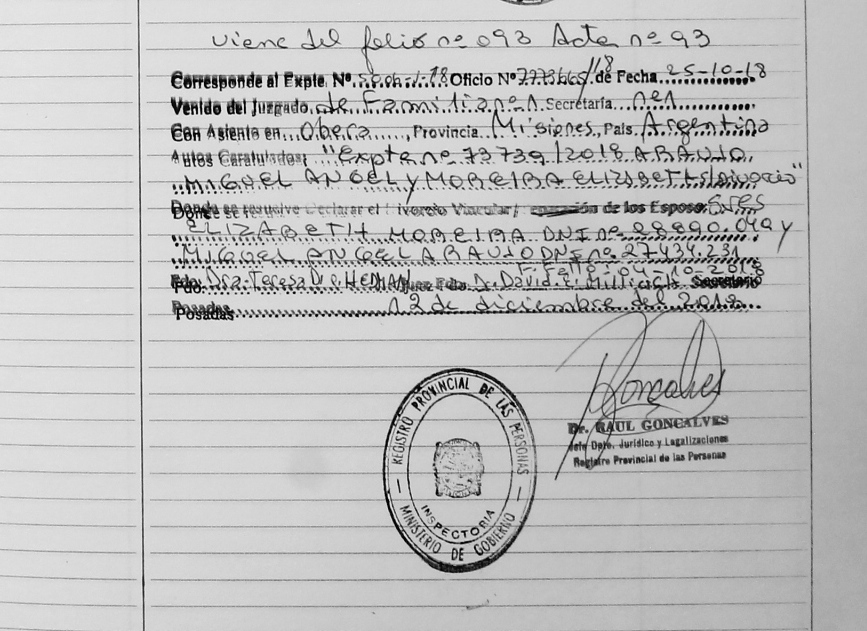 Viene del folio nº 093 Acta nº 93
Corresponde al Expte. Nº 5006-1-18 Oficio Nº /18 de Fecha 25-10-18
Venido del Juzgado de Familia nº1 Secretaría nº1
Con Asiento en Obera, Provincia Misiones, País Argentina
Autos Caratulados: "Expte nº 73739/2018 ARAUJO
MIGUEL ANGEL y MOREIRA ELIZABETH s/divorcio"
Donde se resuelve Declarar el Divorcio Vincular de los Esposos Sres
ELIZABETH MOREIRA DNI nº 28.890.049 y
MIGUEL ANGEL ARAUJO DNI nº 27.434.231
F. Fallo: 04-10-2018
Fdo: Dra. Teresa Juez Fdo. Dr. David Secretario
Posadas 12 de diciembre del 2018
Goncalves
Dr. RAUL GONCALVES
Jefe Dpto. Jurídico y Legalizaciones
Registro Provincial de las Personas
REGISTRO PROVINCIAL DE LAS PERSONAS
INSPECTORIA
MINISTERIO DE GOBIERNO